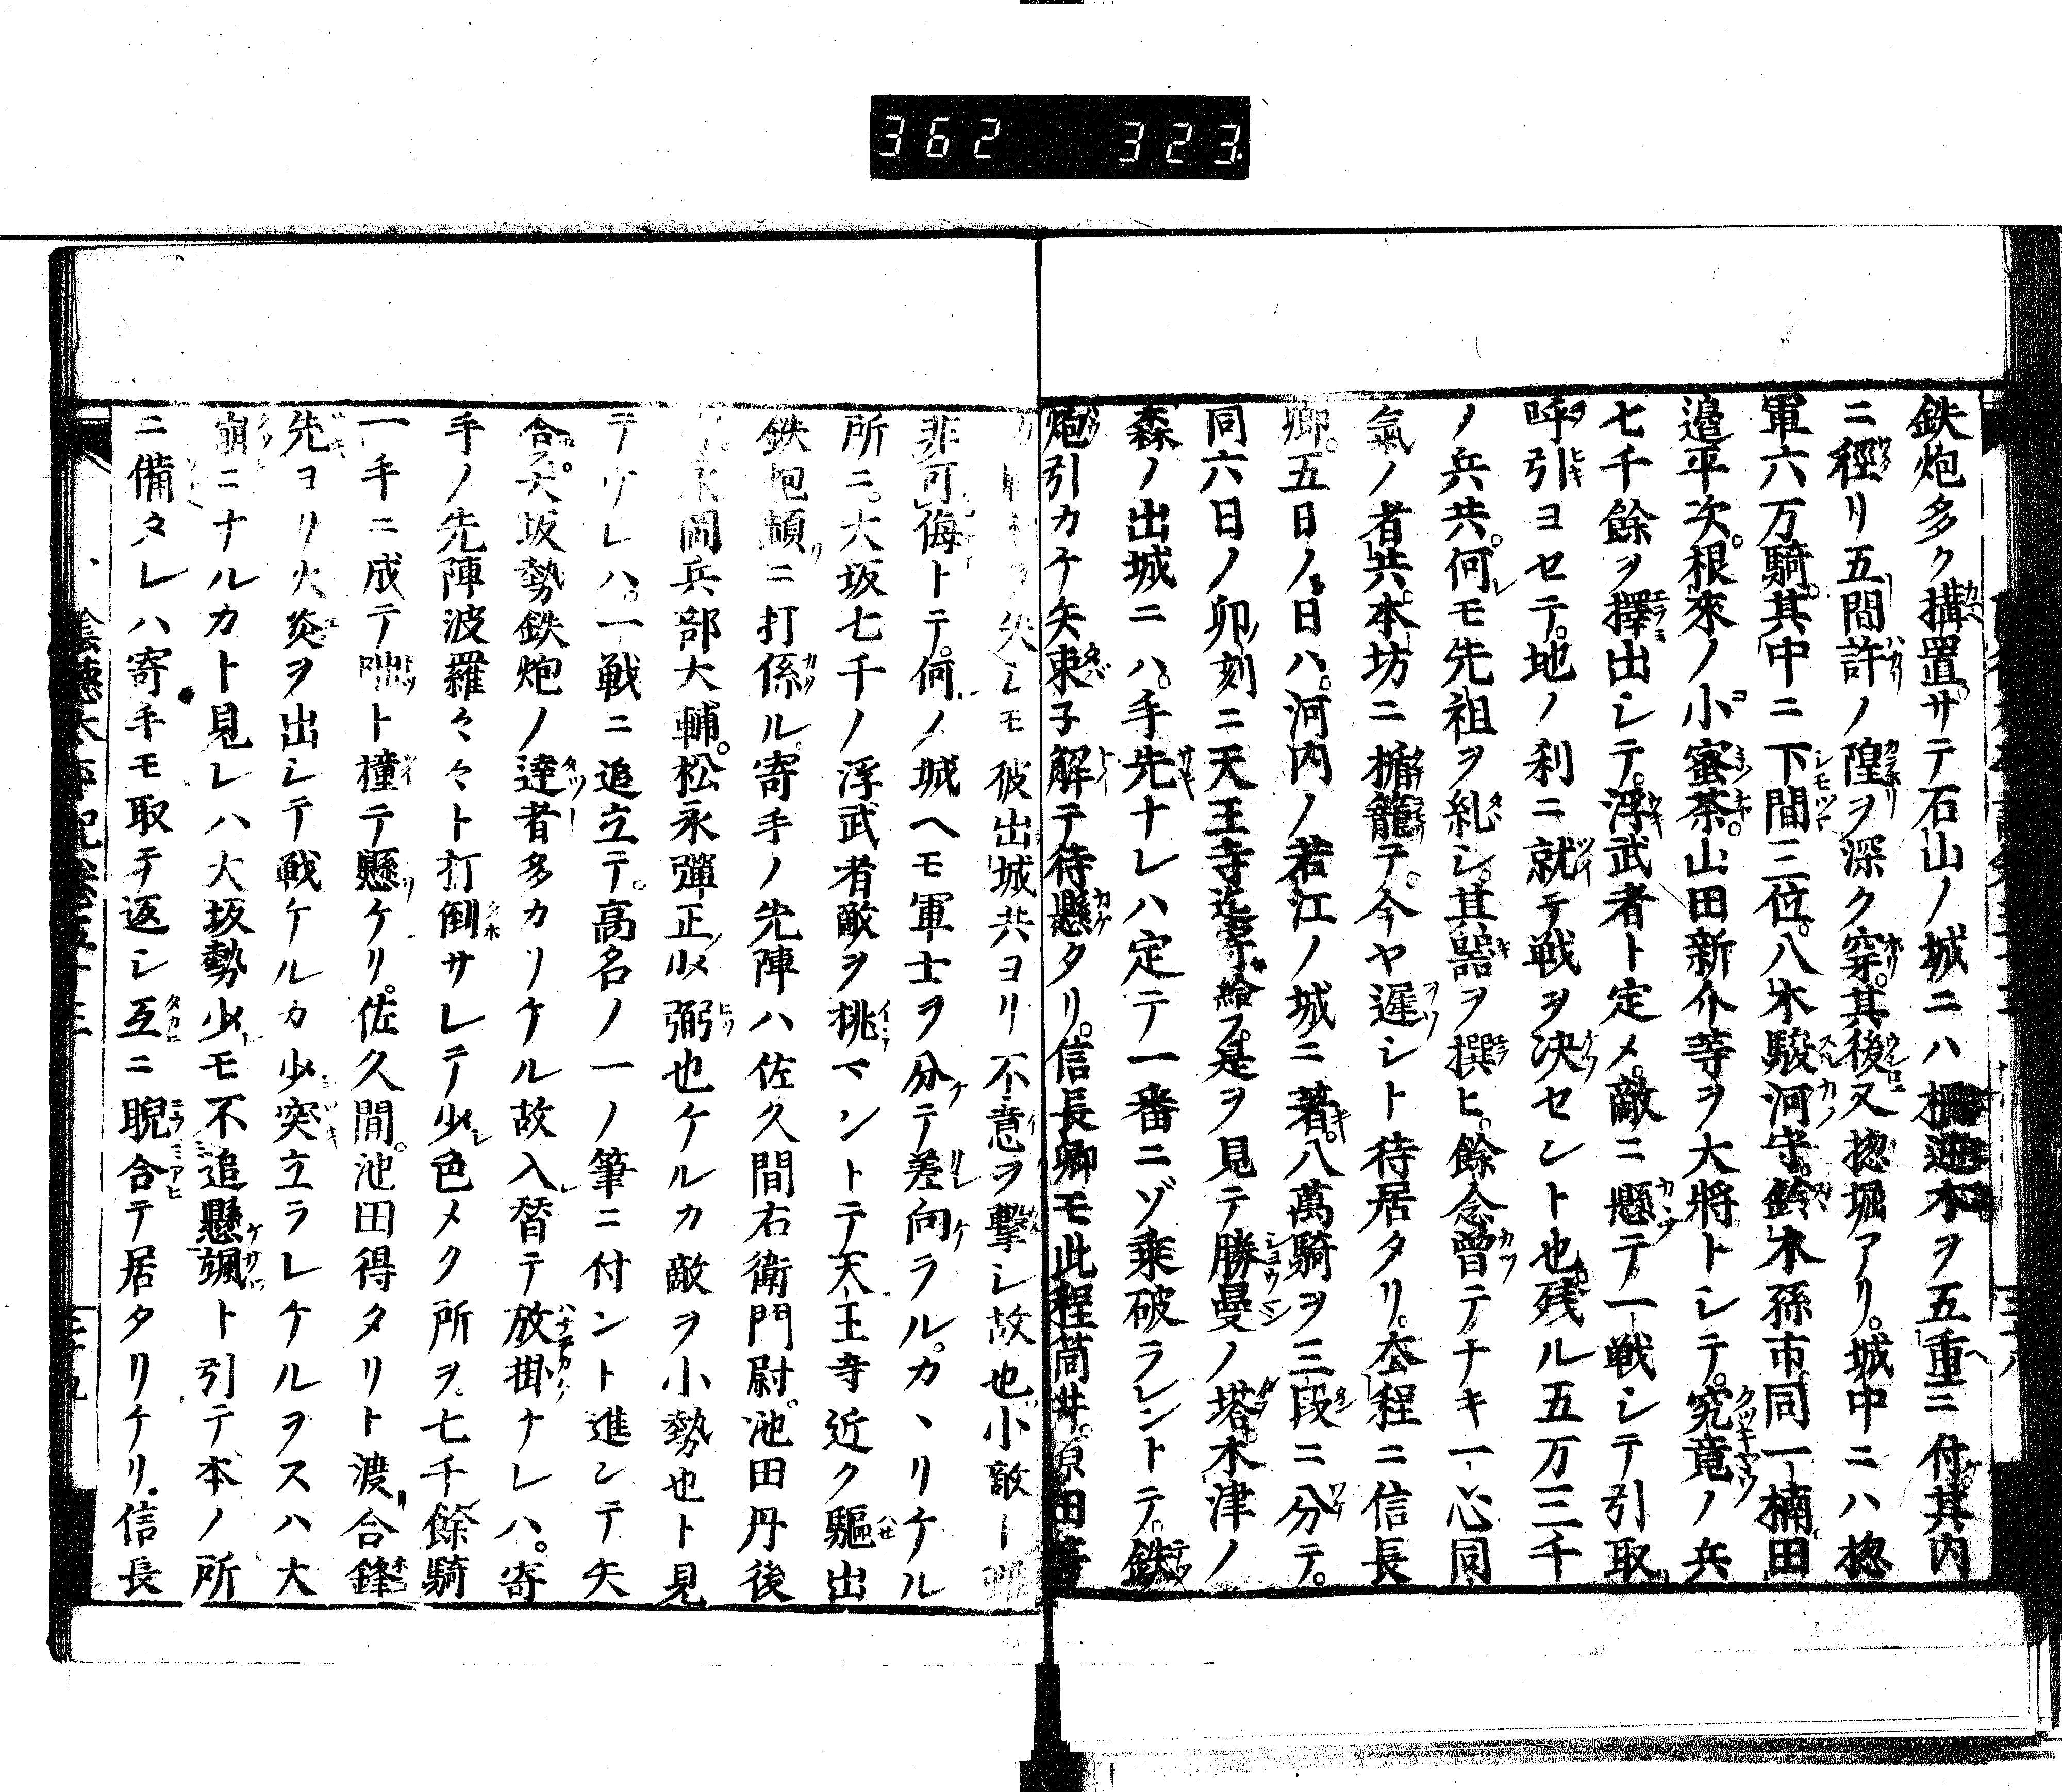 362 323
鉄炮多ク搆置サテ石山ノ城ニハ柵逆木ヲ五重ニ付其内
ニ徑リ五間許ノ隍ヲ深ク穿其後又惣堀アリ。城中ニハ惣
軍六万騎。其中ニ下間三位。八木駿河守。鈴木孫市同一楠田
邉平次。根來ノ小蜜茶。山田新介等ヲ大將トシテ。究竟ノ兵
七千餘ヲ擇出シテ。浮武者ト定メ。敵ニ懸テ一戦シテ引取
呼引ヨセテ。地ノ利ニ就テ戦ヲ决セント也。残ル五万三千
ノ兵共。何モ先祖ヲ糺シ。其器ヲ撰ヒ。餘念曾テナキ一心同
氣ノ者共。本坊ニ楯籠テ。今ヤ遲シト待居タリ。厺程ニ信長
卿。五日ノ日ハ。河内ノ若江ノ城ニ著。八萬騎ヲ三段ニ分テ。
同六日ノ卯刻ニ天王寺迄寄給フ。是ヲ見テ勝曼ノ塔。木津ノ
森ノ出城ニハ。手先ナレハ定テ一番ニゾ乗破ラレントテ。鉄
炮引カケ矢束子解テ待懸タリ。信長卿モ此程筒井。原田等
矢シモ彼出城共ヨリ不意ヲ撃シ故也。小敵ト
非可侮トテ。何ノ城ヘモ軍士ヲ分テ差向ラル。カヽリケル
所ニ。大坂七千ノ浮武者敵ヲ桃マントテ天王寺近ク驅出
鉄炮頻ニ打係ル。寄手ノ先陣ハ佐久間右衛門尉。池田丹後
永岡兵部大輔。松永彈正少弼也ケルカ敵ヲ小勢也ト見
テケレハ。一戦ニ追立テ。高名ノ一ノ筆ニ付ント進ンテ矢
合ス。大坂勢鉄炮ノ達者多カリケル故入替テ放掛ケレハ。寄
手ノ先陣波羅々々ト打倒サレテ少色メク所ヲ。七千餘騎
一手ニ成テ咄ト撞テ懸ケリ。佐久間。池田得タリト渡合鋒
先ヨリ火炎ヲ出シテ戦ケルカ少突立ラレケルヲスハ大
崩ニナルカト見レハ大坂勢少モ不追懸颯ト引テ本ノ所
ニ備タレハ寄手モ取テ返シ互ニ睨合テ居タリケリ。信長